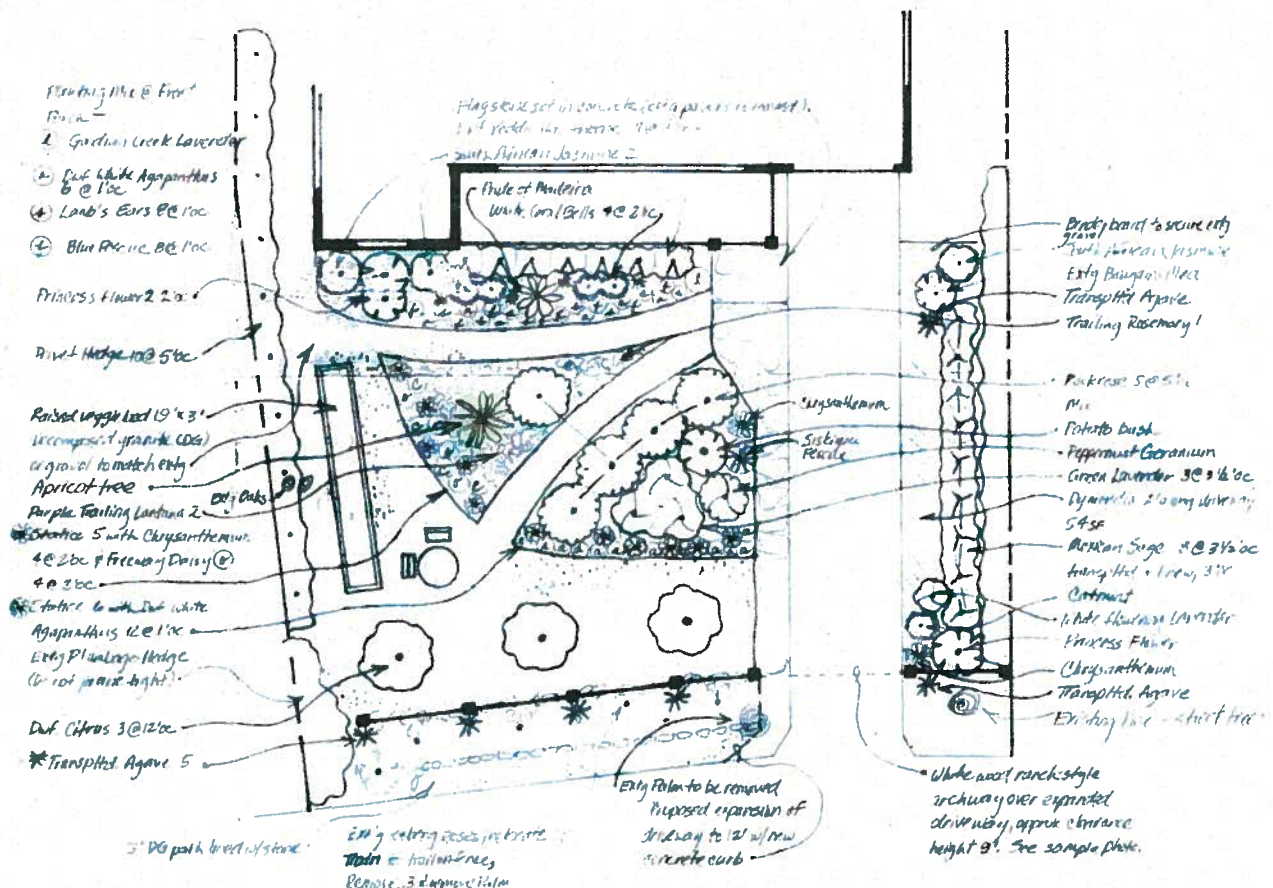 Planting Mix @ Front
Porch —
Garden Creek Lavender
Dwf White Agapanthus
6 @ 1'oc
Lamb's Ears 8@ 1'oc
Blue Fescue 8@ 1'oc
Princess Flower 2 2'oc
Privet Hedge 10@ 5'oc
Raised veggie bed 19'x3'
Decomposed granite (DG)
or gravel to match extg
Apricot tree
Extg Oaks
Purple Trailing Lantana 2
Statice 5 with Chrysanthemum
4@ 2'oc & Freeway Daisy
4@ 2'oc
Statice 6 with Dwf White
Agapanthus 12@ 1'oc
Extg Plumbago Hedge
(do not prune tight)
Dwf Citrus 3@12'oc
Transpltd. Agave 5
3' DG path lined w/stone
Flagstone set in concrete
Jasmine 2
Pride of Madeira
White Coral Bells 4@ 2'oc
Chrysanthemum
Siskiyou
Extg Palm to be removed
Proposed expansion of
driveway to 12' w/new
concrete curb
Extg
Train
Remove 3
Bendyboard to secure extg
gravel
Jasmine
Extg Bougainvillea
Transpltd Agave
Trailing Rosemary 1
Rockrose 5@5'oc
Mix
Potato bush
Peppermint Geranium
Green Lavender 3@ 3½'oc
Dymondia 2' along driveway
54 SF
Mexican Sage 8@ 3½'oc
transpltd + 1 new,
Catmint
White Lavender
Princess Flower
Chrysanthemum
Transpltd. Agave
Existing street tree
White wood ranch style
archway over expanded
driveway, approx clearance
height 9'. See sample photo.